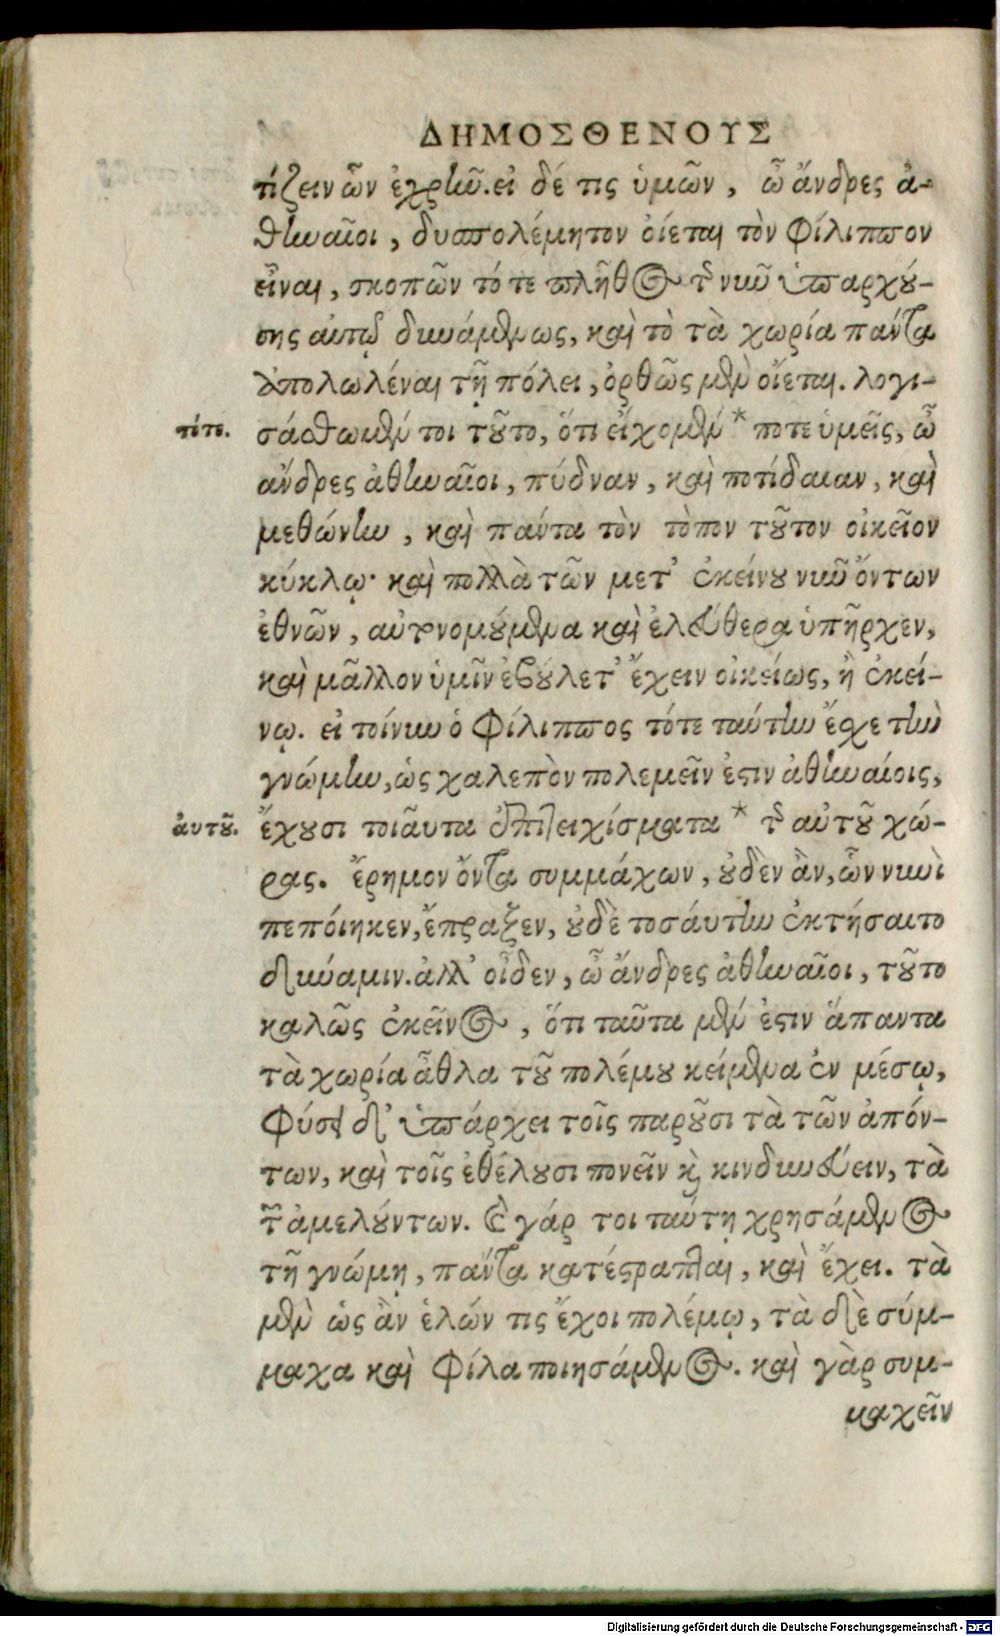 ΔΗΜΟΣΘΕΝΟΥΣ
τίζειν ὧν ἐχρῆν. εἰ δέ τις ὑμῶν, ὦ ἄνδρες ἀ-
θηναῖοι, δυσπολέμητον οἴεται τὸν Φίλιππον
εἶναι, σκοπῶν τό τε πλῆθος τῆς νῦν ὑπαρχού-
σης αὐτῷ δυνάμεως, καὶ τὸ τὰ χωρία πάντα
ἀπολωλέναι τῇ πόλει, ὀρθῶς μὲν οἴεται. λογι-
τότε. σάσθω μέν τοι τοῦτο, ὅτι εἴχομέν * ποτε ὑμεῖς, ὦ
ἄνδρες ἀθηναῖοι, πύδναν, καὶ ποτίδαιαν, καὶ
μεθώνην, καὶ πάντα τὸν τόπον τοῦτον οἰκεῖον
κύκλῳ· καὶ πολλὰ τῶν μετ’ ἐκείνου νῦν ὄντων
ἐθνῶν, αὐτονομούμενα καὶ ἐλεύθερα ὑπῆρχεν,
καὶ μᾶλλον ὑμῖν ἐβούλετ’ ἔχειν οἰκείως, ἢ ἐκεί-
νῳ. εἰ τοίνυν ὁ Φίλιππος τότε ταύτην ἔσχε τὴν
γνώμην, ὡς χαλεπὸν πολεμεῖν ἐστιν ἀθηναίοις,
ἀυτοῦ. ἔχουσι τοιαῦτα ἐπιτειχίσματα * τῆς αὐτοῦ χώ-
ρας. ἔρημον ὄντα συμμάχων, οὐδὲν ἂν, ὧν νυνὶ
πεπόιηκεν, ἔπραξεν, οὐδὲ τοσάυτην ἐκτήσαιτο
δύναμιν. ἀλλ’ οἶδεν, ὦ ἄνδρες ἀθηναῖοι, τοῦτο
καλῶς ἐκεῖνος, ὅτι ταῦτα μέν ἐστιν ἅπαντα
τὰ χωρία ἆθλα τοῦ πολέμου κείμενα ἐν μέσῳ,
Φύσει δ’ ὑπάρχει τοῖς παροῦσι τὰ τῶν ἀπόν-
των, καὶ τοῖς ἐθέλουσι πονεῖν καὶ κινδυνεύειν, τὰ
τῶν ἀμελούντων. Ἐ γάρ τοι ταύτῃ χρησάμενος
τῇ γνώμῃ, πάντα κατέστραπται, καὶ ἔχει. τὰ
μὲν ὡς ἂν ἑλών τις ἔχοι πολέμῳ, τὰ δὲ σύμ-
μαχα καὶ Φίλα ποιησάμενος. καὶ γὰρ συμ-
μαχεῖν
Digitalisierung gefördert durch die Deutsche Forschungsgemeinschaft - DFG